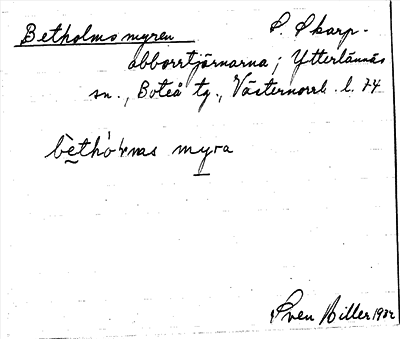 Betholmsmyren S. Skarp-
abborrtjärnarna; Ytterlännäs
sn., Boteå tg., Västernorrl. l. 74
bèthó myra
Sven Hiller 1932